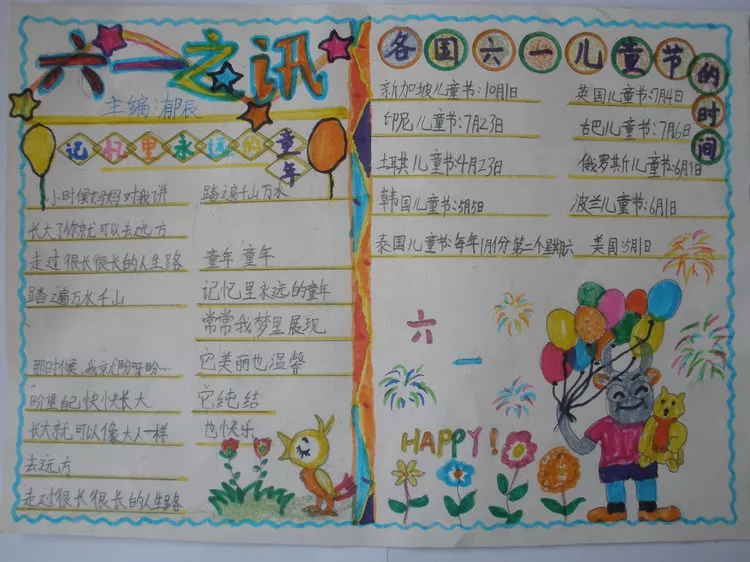 六一之讯
主编:郁辰
记忆里永远的童年
小时候妈妈对我讲
长大了你就可以去远方
走过很长很长的人生路
踏遍万水千山
那时候,我就盼呀盼……
盼望自己快快长大
长大就可以像大人一样
去远方
走过很长很长的人生路
踏遍千山万水
童年 童年
记忆里永远的童年
常常我梦里展现
它美丽也温馨
它纯结
也快乐
各国六一儿童节的时间
新加坡儿童节:10月1日
英国儿童节:7月4日
印尼儿童节:7月23日
古巴儿童节:7月6日
土耳其儿童节:4月23日
俄罗斯儿童节:6月1日
韩国儿童节:5月5日
波兰儿童节:6月1日
泰国儿童节:每年1月份第二个星期六
美国:5月1日
六一
HAPPY!